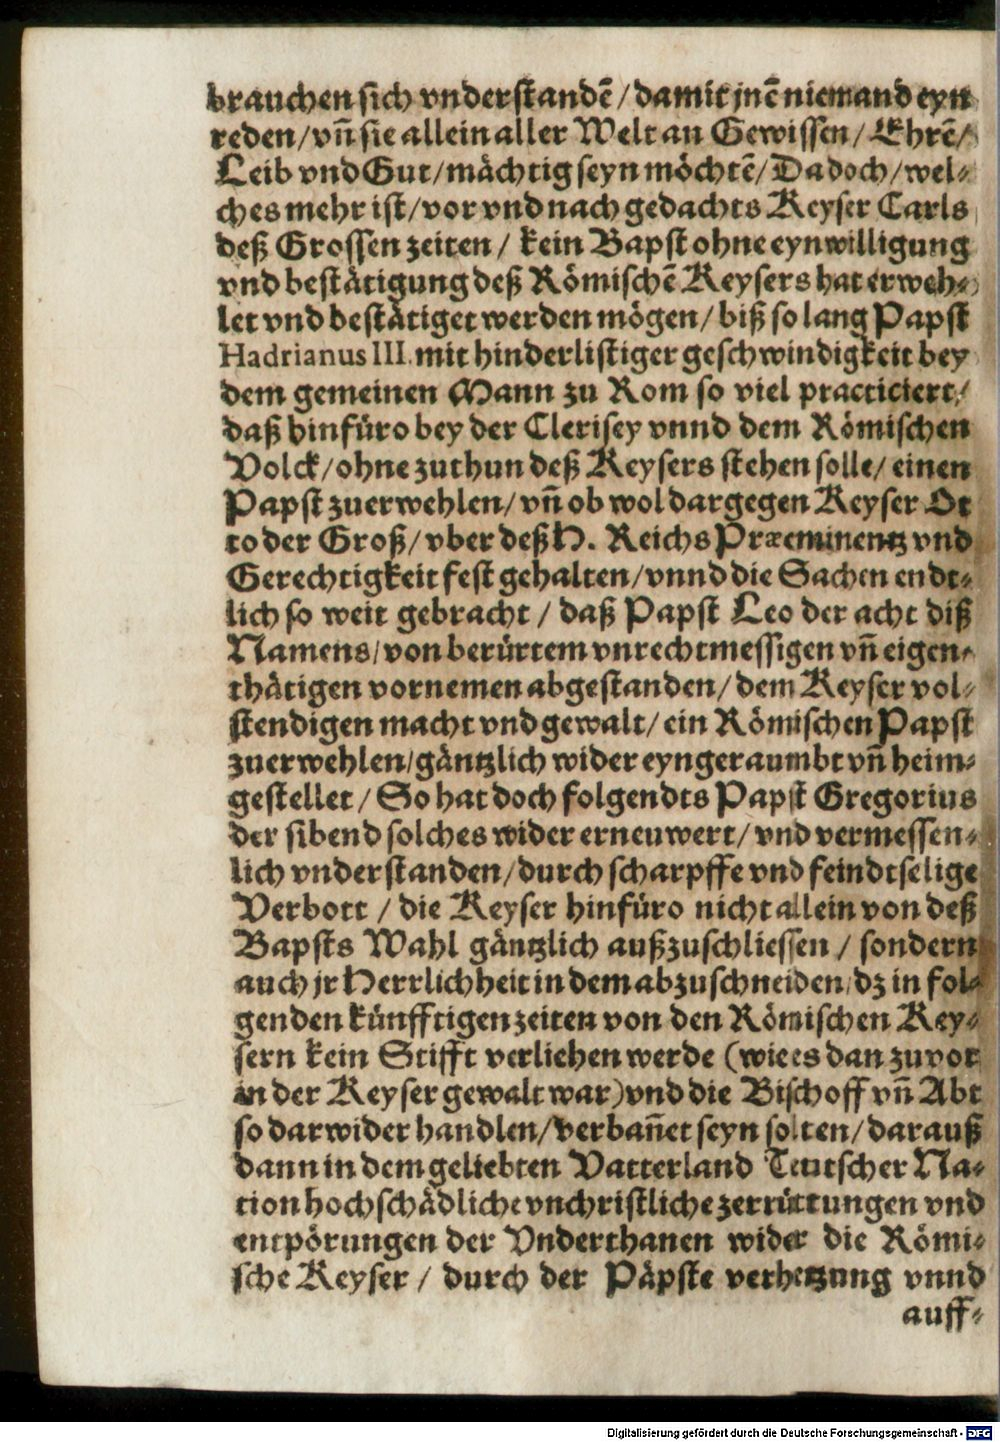 brauchen sich vnderstandē / damit jnē niemand eyn
reden / vñ sie allein aller Welt an Gewissen / Ehrē /
Leib vnd Gut / mächtig seyn möchtē / Da doch / wel⸗
ches mehr ist / vor vnd nach gedachts Keyser Carls
deß Grossen zeiten / kein Bapst ohne eynwilligung
vnd bestätigung deß Römischē Keysers hat erweh⸗
let vnd bestätiget werden mögen / biß so lang Papst
Hadrianus III. mit hinderlistiger geschwindigkeit bey
dem gemeinen Mann zu Rom so viel practiciert /
daß hinfüro bey der Clerisey vnnd dem Römischen
Volck / ohne zuthun deß Keysers stehen solle / einen
Papst zuerwehlen / vñ ob wol dargegen Keyser Ot
to der Groß / vber deß H. Reichs Præeminentz vnd
Gerechtigkeit fest gehalten / vnnd die Sachen endt⸗
lich so weit gebracht / daß Papst Leo der acht diß
Namens / von berürtem vnrechtmessigen vñ eigen⸗
thätigen vornemen abgestanden / dem Keyser vol⸗
stendigen macht vnd gewalt / ein Römischen Papst
zuerwehlen / gäntzlich wider eyngeraumbt vñ heim⸗
gestellet / So hat doch folgendts Papst Gregorius
der sibend solches wider erneuwert / vnd vermessen⸗
lich vnderstanden / durch scharpffe vnd feindtselige
Verbott / die Keyser hinfüro nicht allein von deß
Bapsts Wahl gäntzlich außzuschliessen / sondern
auch jr Herrlichheit in dem abzuschneiden / dz in fol⸗
genden künfftigen zeiten von den Römischen Key⸗
sern kein Stifft verliehen werde (wie es dan zuvor
in der Keyser gewalt war) vnd die Bischoff vñ Abt
so darwider handlen / verbañet seyn solten / darauß
dann in dem geliebten Vatterland Teutscher Na⸗
tion hochschädliche vnchristliche zerrüttungen vnd
entpörungen der Vnderthanen wider die Römi⸗
sche Keyser / durch der Päpste verhetzung vnnd
auff⸗
Digitalisierung gefördert durch die Deutsche Forschungsgemeinschaft - DFG